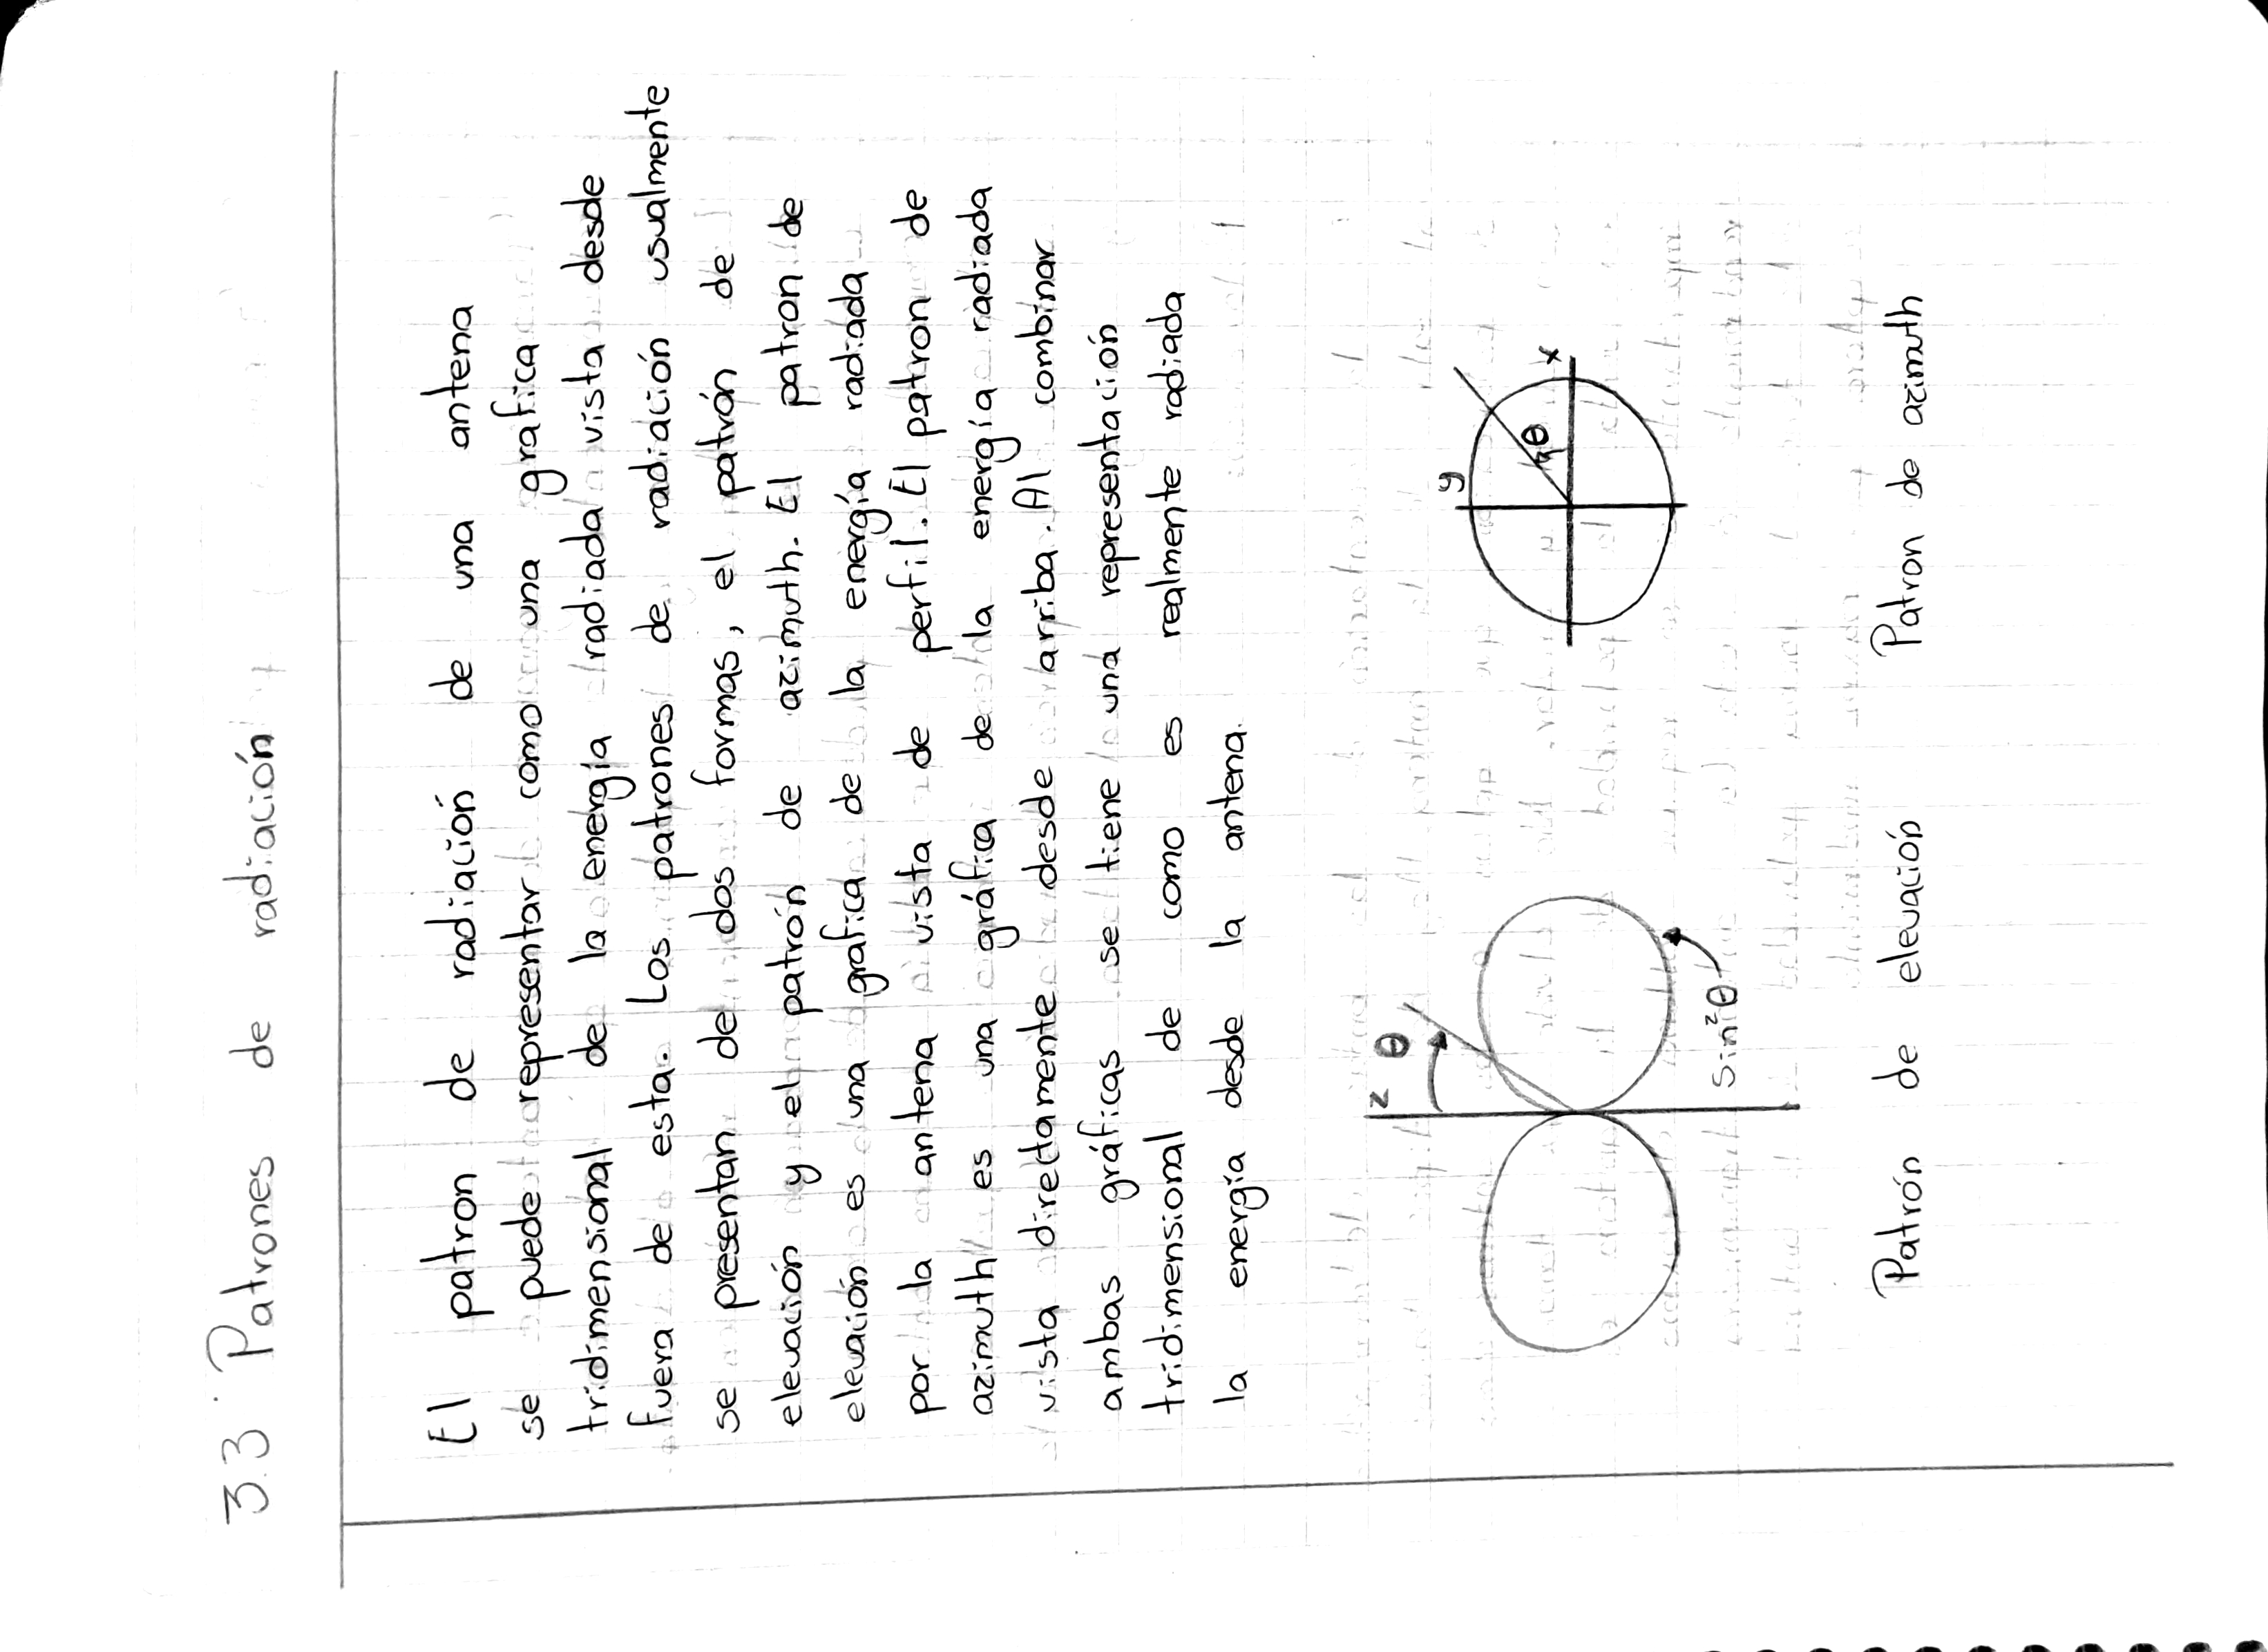 3.3 Patrones de radiación
El patron de radiación de una antena
se puede representar como una grafica
tridimensional de la energía radiada vista desde
fuera de esta. Los patrones de radiación usualmente
se presentan de dos formas, el patrón de
elevación y el patrón de azimuth. El patron de
elevación es una grafica de la energía radiada
por la antena vista de perfil. El patron de
azimuth es una gráfica de la energía radiada
vista directamente desde arriba. Al combinar
ambas gráficas se tiene una representación
tridimensional de como es realmente radiada
la energía desde la antena.
z θ
y
θ x
Sin²θ
Patrón de elevación Patron de azimuth